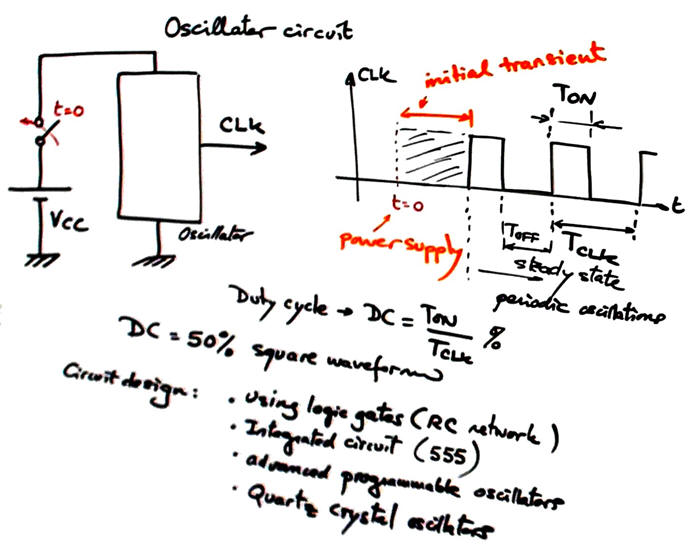 Oscillator circuit
t=0
CLK
Vcc
Oscillator
CLK
initial transient
TON
t=0
t
power supply
TOFF
TCLK
steady state
periodic oscillations
Duty cycle → DC = TON / TCLK %
DC = 50% square waveforms
Circuit design:
• using logic gates (RC network)
• Integrated circuit (555)
• advanced programmable oscillators
• Quartz crystal oscillators